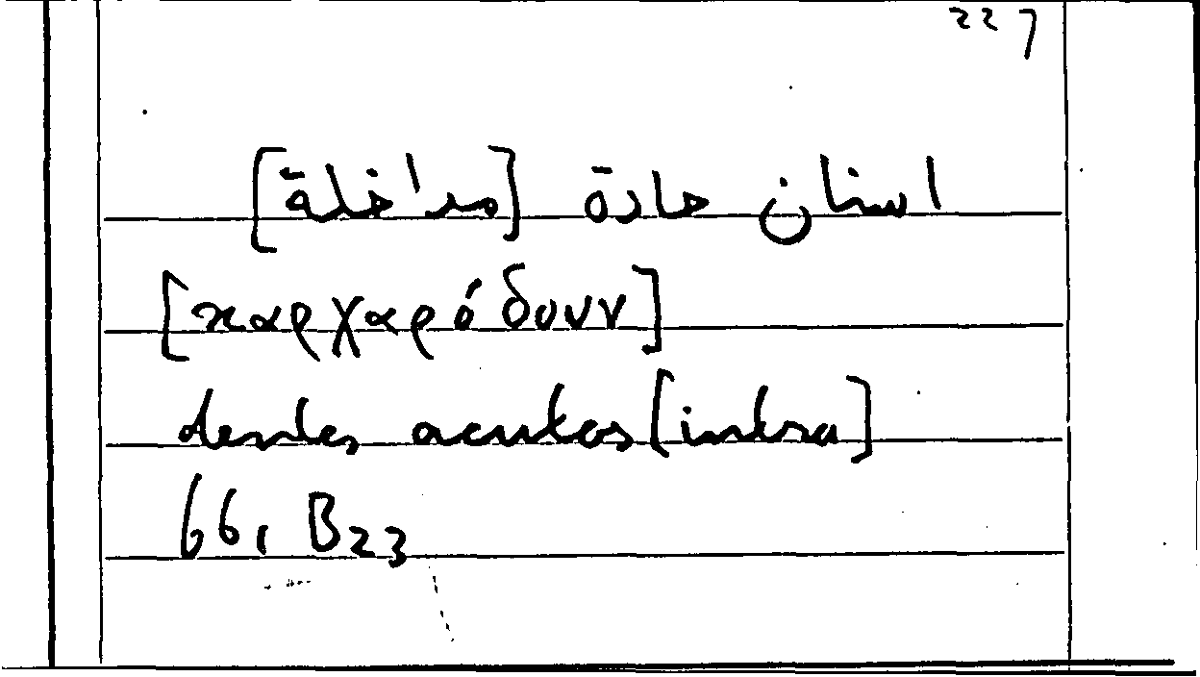 227
اسنان حادة [مداخلة]
[καρχαρόδουν]
dentes acutos [intra]
661 B23